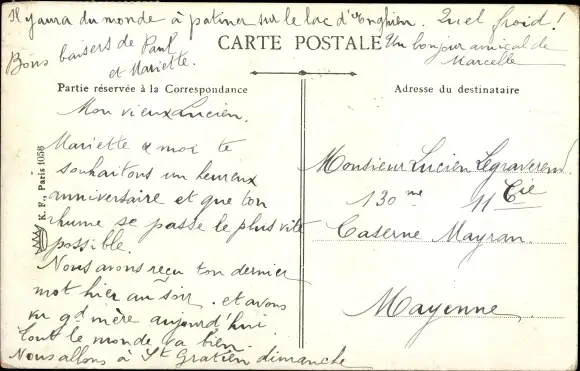 Il y aura du monde à patiner sur le lac d'Enghien. Quel froid !
Bons baisers de Paul
et Mariette.
CARTE POSTALE
Un bonjour amical de
Marcelle
Partie réservée à la Correspondance
Adresse du destinataire
Mon vieux Lucien.
Mariette & moi te
souhaitons un heureux
anniversaire et que ton
rhume se passe le plus vite
possible.
Nous avons reçu ton dernier
mot hier au soir. et avons
vu gd mère aujourd'hui.
tout le monde va bien.
Nous allons à St Gratien dimanche
Monsieur Lucien Legraverend.
130me 11 Cie
Caserne Mayran.
Mayenne
K. F., Paris 1058